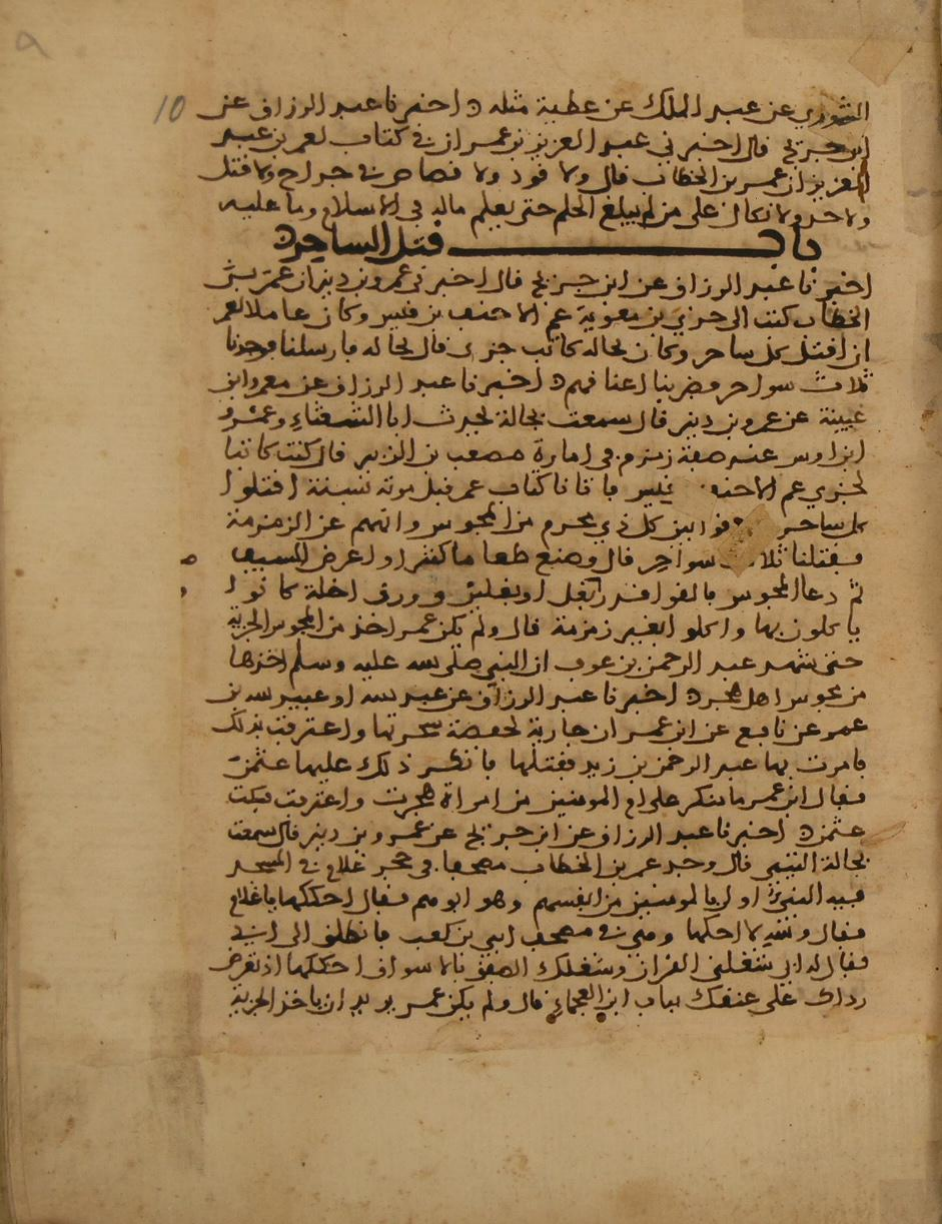 10 الثوري عن عبد الملك عن عطية مثله ه اخبرنا عبد الرزاق عن
ابن جريج قال اخبرني عبد العزيز بن عمر ان في كتاب لعمر بن عبد
العزيز ان عمر بن الخطاب قال ولا قود ولا قصاص في جراح ولا قتل
ولا حد ولا نكال على من لم يبلغ الحلم حتى يعلم ماله في الاسلام وما عليه
باب قتل الساحر ه
اخبرنا عبد الرزاق عن ابن جريج قال اخبرني عمرو بن دينر ان عمر بن
الخطاب كتب الى جزي بن معوية عم الاحنف بن قيس وكان عاملا لعمر
ان اقتل كل ساحر وكان بجاله كاتب جزى قال بجاله فارسلنا فوجدنا
ثلاث سواحر فضربنا اعناقهم ه اخبرنا عبد الرزاق عن معمر وابن
عيينة عن عمرو بن دينر قال سمعت بجالة يحدث ابا الشعثاء وعمرو
ابن اوس عند صفة زمزم في امارة مصعب بن الزبير قال كنت كاتبا
لجزي عم الاحنف قيس فاتانا كتاب عمر قبل موته بسنة اقتلوا
كل ساحر فرقوا بين كل ذي محرم من المجوس وانههم عن الزمزمة
فقتلنا ثلاث سواحر قال وصنع طعاما كثيرا واعرض السيف
ثم دعا المجوس فالقوا قدر بغل او بغلين و ورق اخلة كانوا
ياكلون بها واكلوا بغير زمزمة قال ولم يكن عمر اخذ من المجوس الجزية
حتى شهد عبد الرحمن بن عوف ان النبي صلى الله عليه وسلم اخذها
من مجوس اهل هجر ه اخبرنا عبد الرزاق عن عبد الله او عبيد الله بن
عمر عن نافع عن ابن عمر ان جارية لحفصة سحرتها واعترفت بذلك
فامرت بها عبد الرحمن بن زيد فقتلها فانكر ذلك عليها عثمن
فقال ابن عمر ما تنكر على ام المومنين من امراة سحرت واعترفت فسكت
عثمن ه اخبرنا عبد الرزاق عن ابن جريج عن عمرو بن دينر قال سمعت
بجالة التيمي قال وجد عمر بن الخطاب مصحفا في حجر غلام في المسجد
فيه النبي اولى بالمومنين من انفسهم وهو ابوهم فقال احككها يا غلام
فقال والله لا احكها وهي في مصحف ابي بن كعب فانطلق الى ابي
فقال له ابي شغلني القران وشغلك الصفق بالاسواق اذ تعرض
رداك على عنقك بباب ابن العجماء قال ولم يكن عمر يريد ان ياخذ الجزية